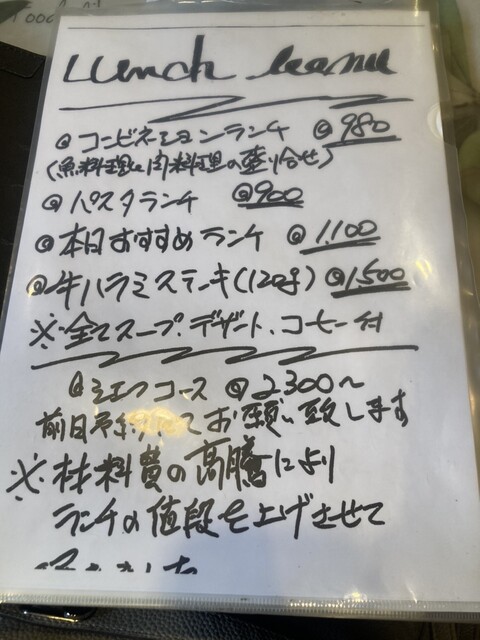 Lunch menu
@ コンビネーションランチ @980
(魚料理と肉料理の盛り合せ)
@ パスタランチ @900
@ 本日おすすめランチ @1,100
@ 牛ハラミステーキ(120g) @1,500
※全てスープ、デザート、コーヒー付
@ シェフコース @2,300〜
前日予約にてお願い致します
※材料費の高騰により
ランチの値段を上げさせて